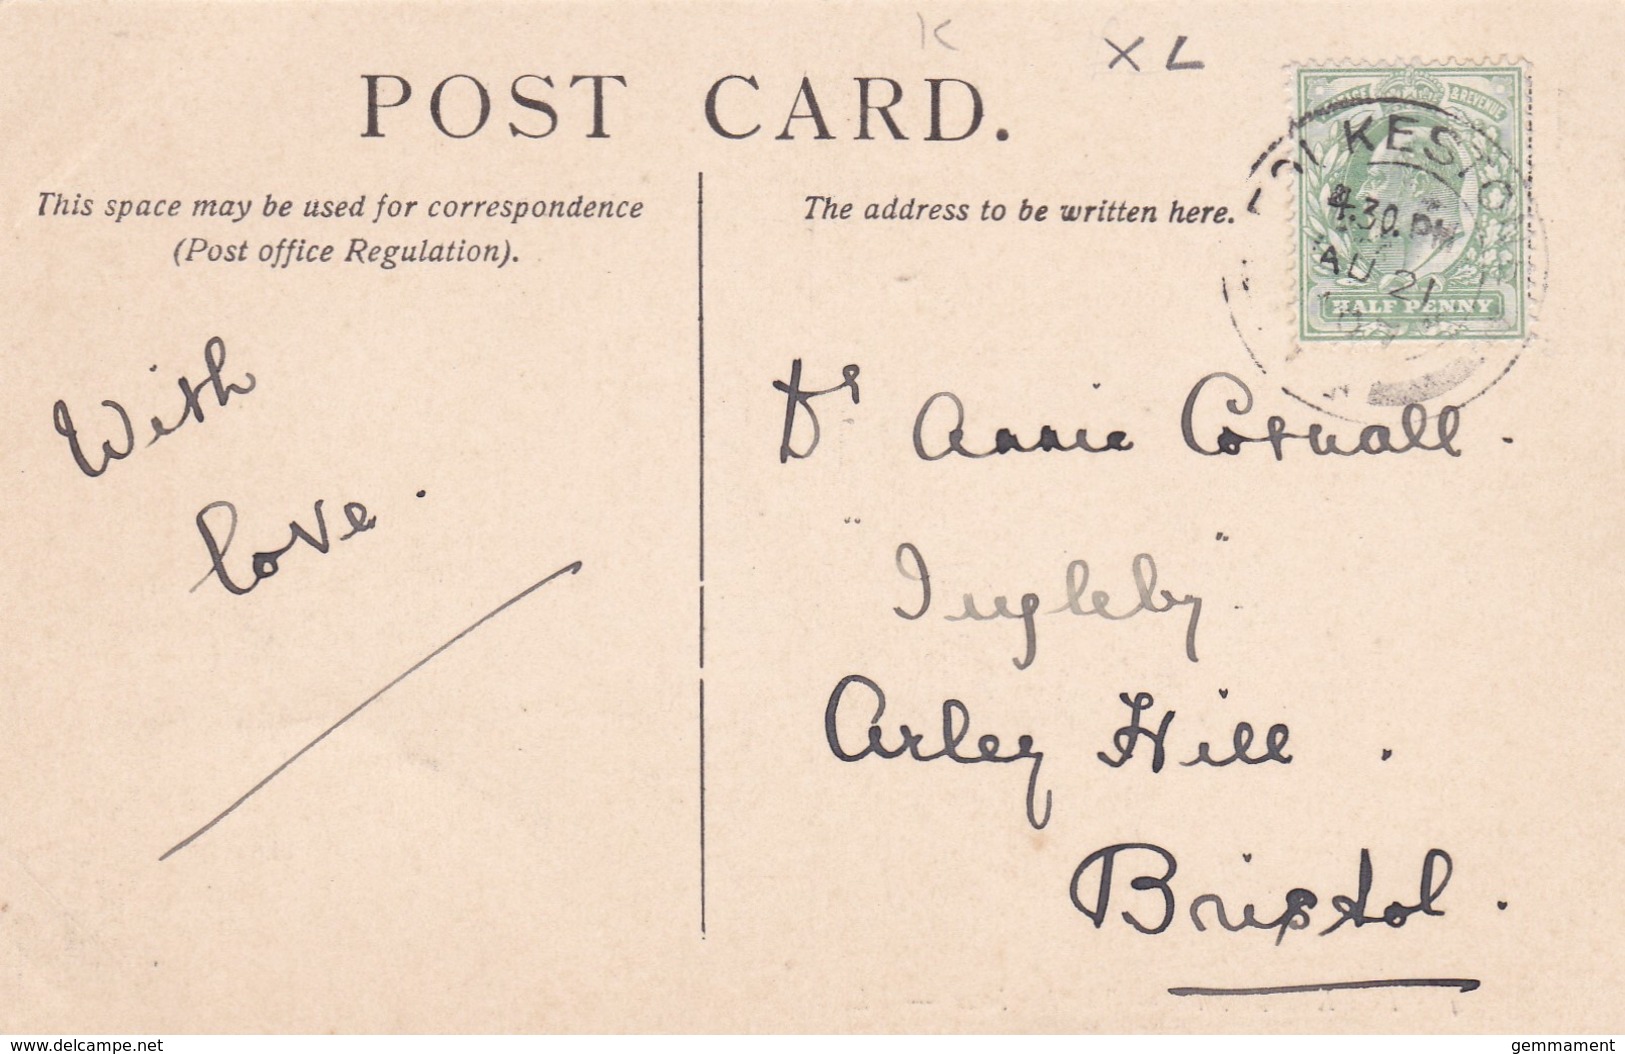 K
X L
POST CARD.
This space may be used for correspondence
(Post office Regulation).
The address to be written here.
POSTAGE & REVENUE
HALF PENNY
FOLKESTONE
4.30 PM
AU 21
With
love.
Dr Annie Cornall.
"Ingleby"
Arley Hill.
Bristol.
www.delcampe.net
gemmament